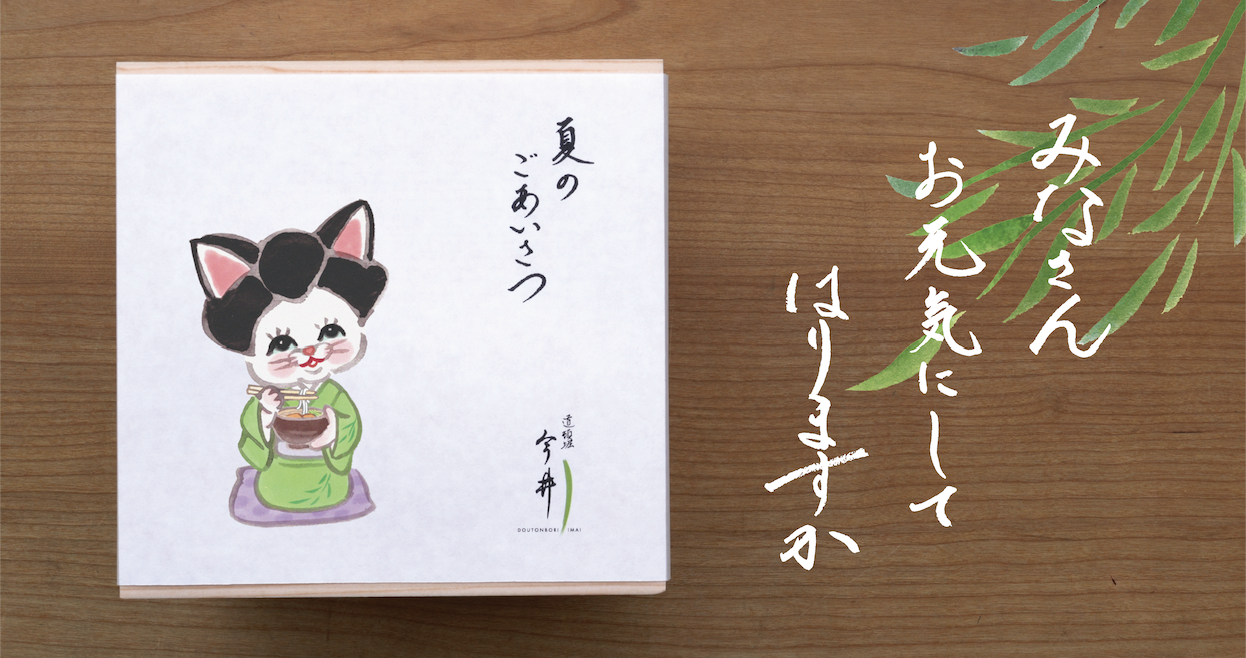 夏の
ごあいさつ
道頓堀
今井
DOUTONBORI IMAI
みなさん
お元気にして
はりますか